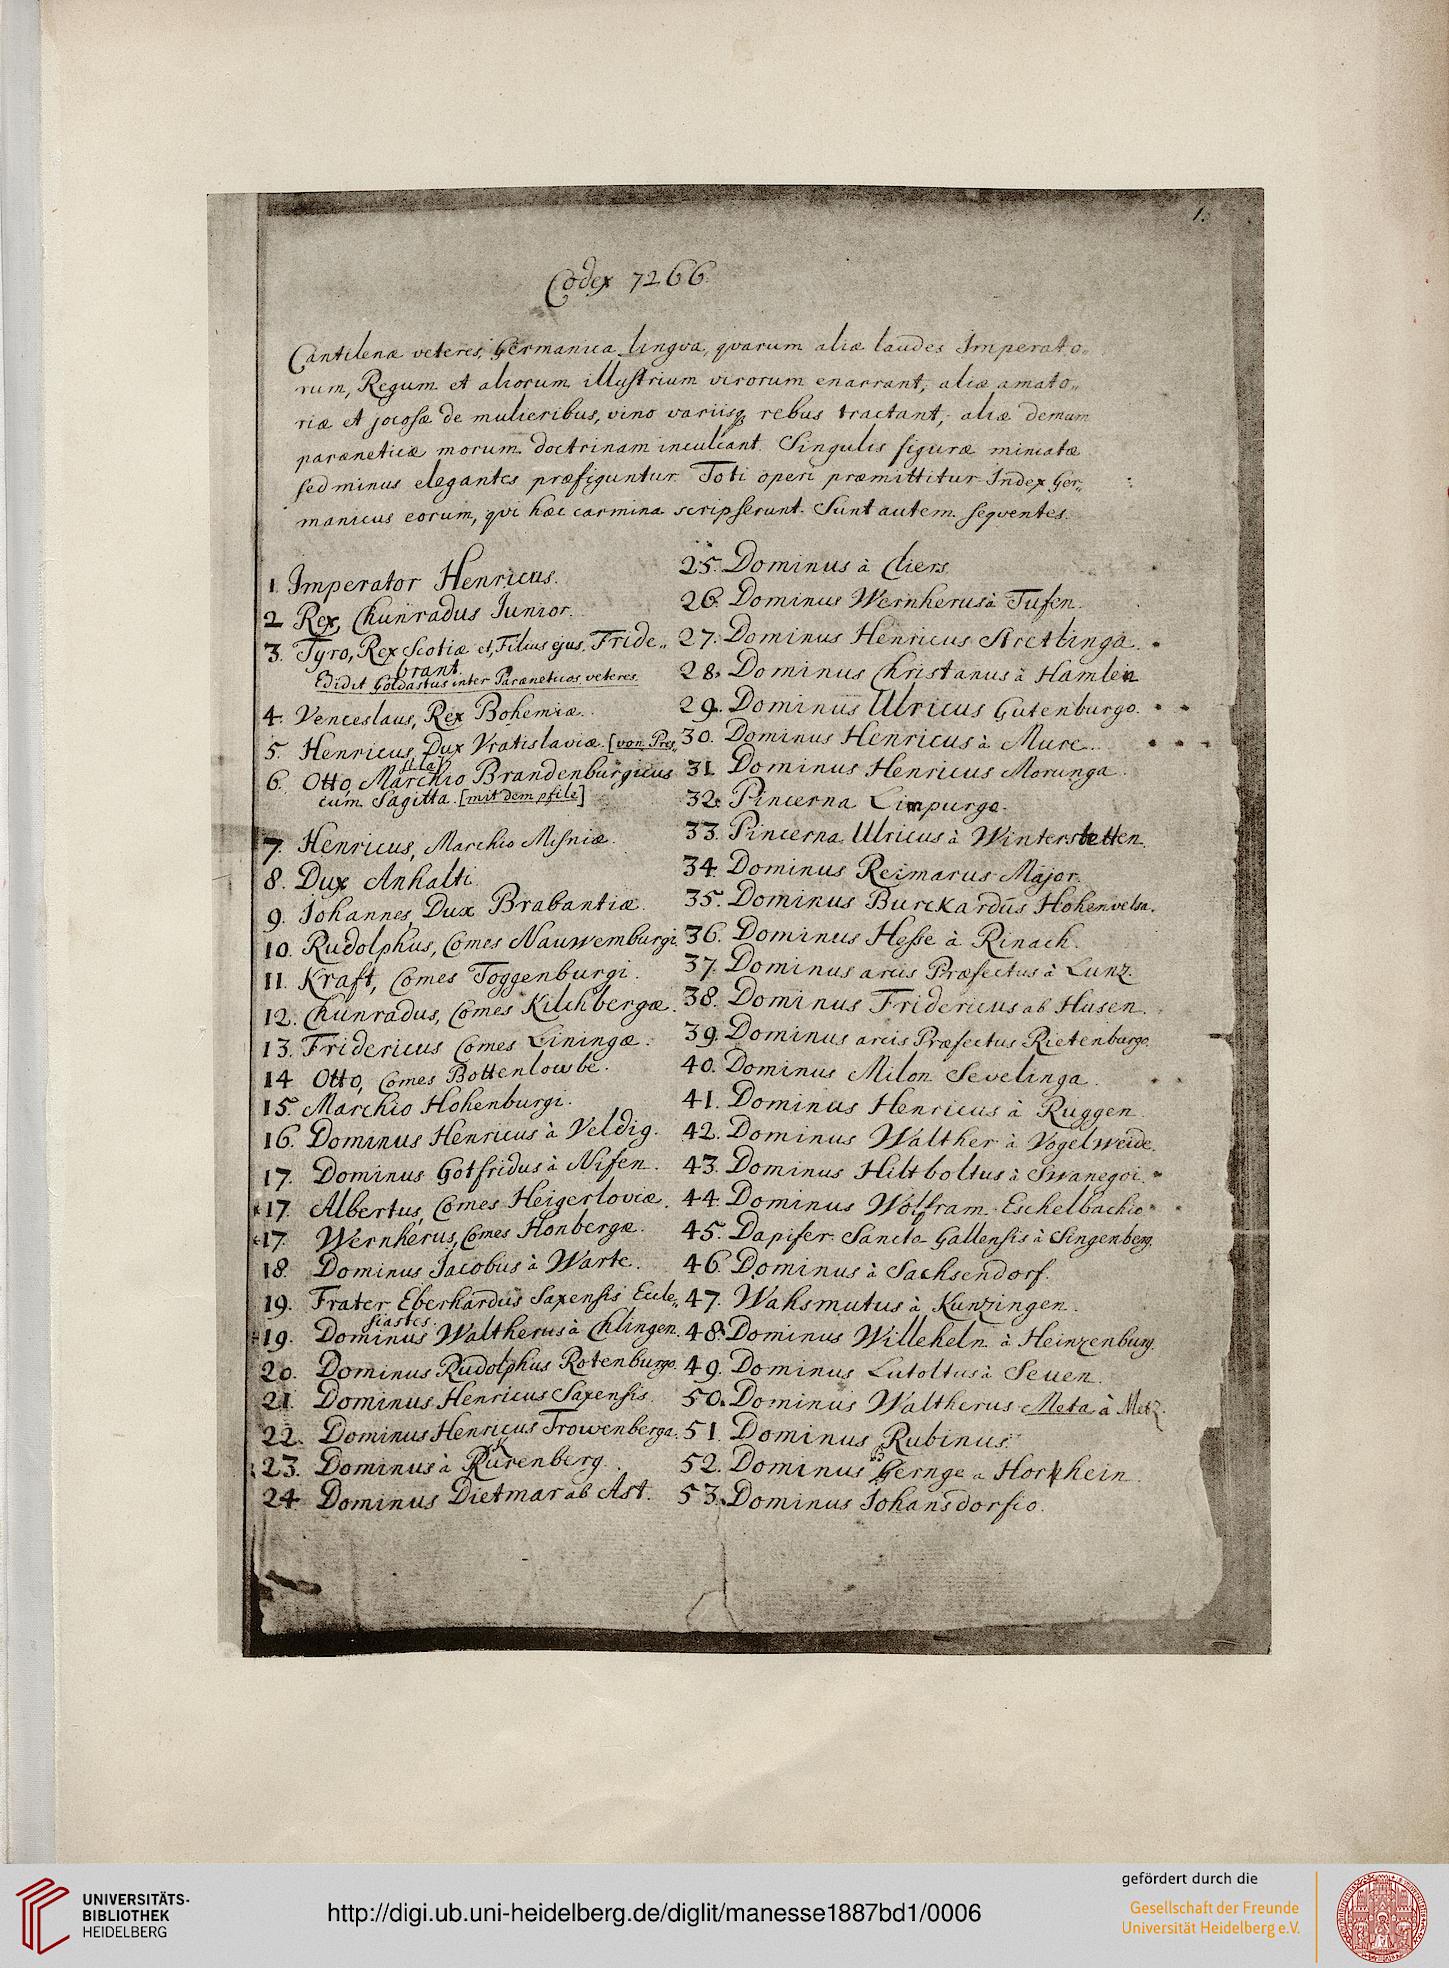 1.
Codex 7266.
Cantilenæ veteres, Germanica lingva, qvarum aliæ laudes Imperato„
rum, Regum et aliorum illustrium virorum enarrant, aliæ amato„
riæ et jocosæ de mulieribus, vino variisq rebus tractant, aliæ demum
paræneticæ morum doctrinam inculcant. Singulis figuræ miniatæ
sed minus elegantes præfiguntur. Toti operi præmittitur Index Ger„
manicus eorum, qvi hæc carmina scripserunt. Sunt autem seqventes.
1. Imperator Henricus.
2 Rex Chunradus Junior.
3. Tyro, Rex Scotiæ et Filius ejus, Fride„
brant.
Edidit Goldastus inter Paræneticos veteres.
4. Venceslaus, Rex Bohemiæ.
5. Henricus, Dux Vratislaviæ. [von Pres„
sla]
6. Otto, Marchio Brandenburgicus
cum Sagitta. [mit dem pfile]
7. Henricus, Marchio Misniæ.
8. Dux Anhalti
9. Johannes, Dux Brabantiæ.
10. Rudolphus, Comes Nauwemburgi.
11. Kraft, Comes Toggenburgi.
12. Chunradus, Comes Kilchbergæ.
13. Fridericus Comes Liningæ.
14 Otto, Comes Bottenlowbe.
15. Marchio Hohenburgi.
16. Dominus Henricus à Veldig.
17. Dominus Gotfridus à Nifen.
*17. Albertus, Comes Heigerloviæ.
*17. Wernherus, Comes Honbergæ.
18. Dominus Jacobus à Warte.
19. Frater Eberhardus Saxensis Eccle„
siastes.
*19. Dominus Waltherus à Chlingen.
20. Dominus Rudolphus Rotenburgo.
21. Dominus Henricus Saxensis.
22. Dominus Henricus Frowenberga.
23. Dominus à Kurenberg.
24. Dominus Dietmar ab Ast.
25. Dominus à Cliers.
26. Dominus Wernherus à Tufen.
27. Dominus Henricus Stretlinga.
28. Dominus Christanus à Hamlen
29. Dominus Ulricus Gutenburgo.
30. Dominus Henricus à Mure.
31. Dominus Henricus Morunga.
32. Pincerna Limpurgo.
33. Pincerna Ulricus à Winterstetten.
34. Dominus Reimarus Major.
35. Dominus Burckardus Hohenvelsa.
36. Dominus Hesse à Rinach.
37. Dominus arcis Præfectus à Lunz.
38. Dominus Fridericus ab Husen.
39. Dominus arcis Præfectus Rietenburgo.
40. Dominus Milon Sevelinga.
41. Dominus Henricus à Ruggen.
42. Dominus Walther à Vogelweide.
43. Dominus Hiltboltus à Swanegoi.
44. Dominus Wolfram Eschelbachio
45. Dapifer Sancto Gallensis à Singenberg.
46. Dominus à Sachsendorf.
47. Wahsmutus à Kunzingen.
48. Dominus Willeheln à Heinzenburg.
49. Dominus Lutoltus à Seuen.
50. Dominus Waltherus Meta à Metz.
51. Dominus Rubinus.
52. Dominus Bernge a Horhein.
53. Dominus Johansdorfio.
UNIVERSITÄTS-
BIBLIOTHEK
HEIDELBERG
http://digi.ub.uni-heidelberg.de/diglit/manesse1887bd1/0006
gefördert durch die
Gesellschaft der Freunde
Universität Heidelberg e.V.